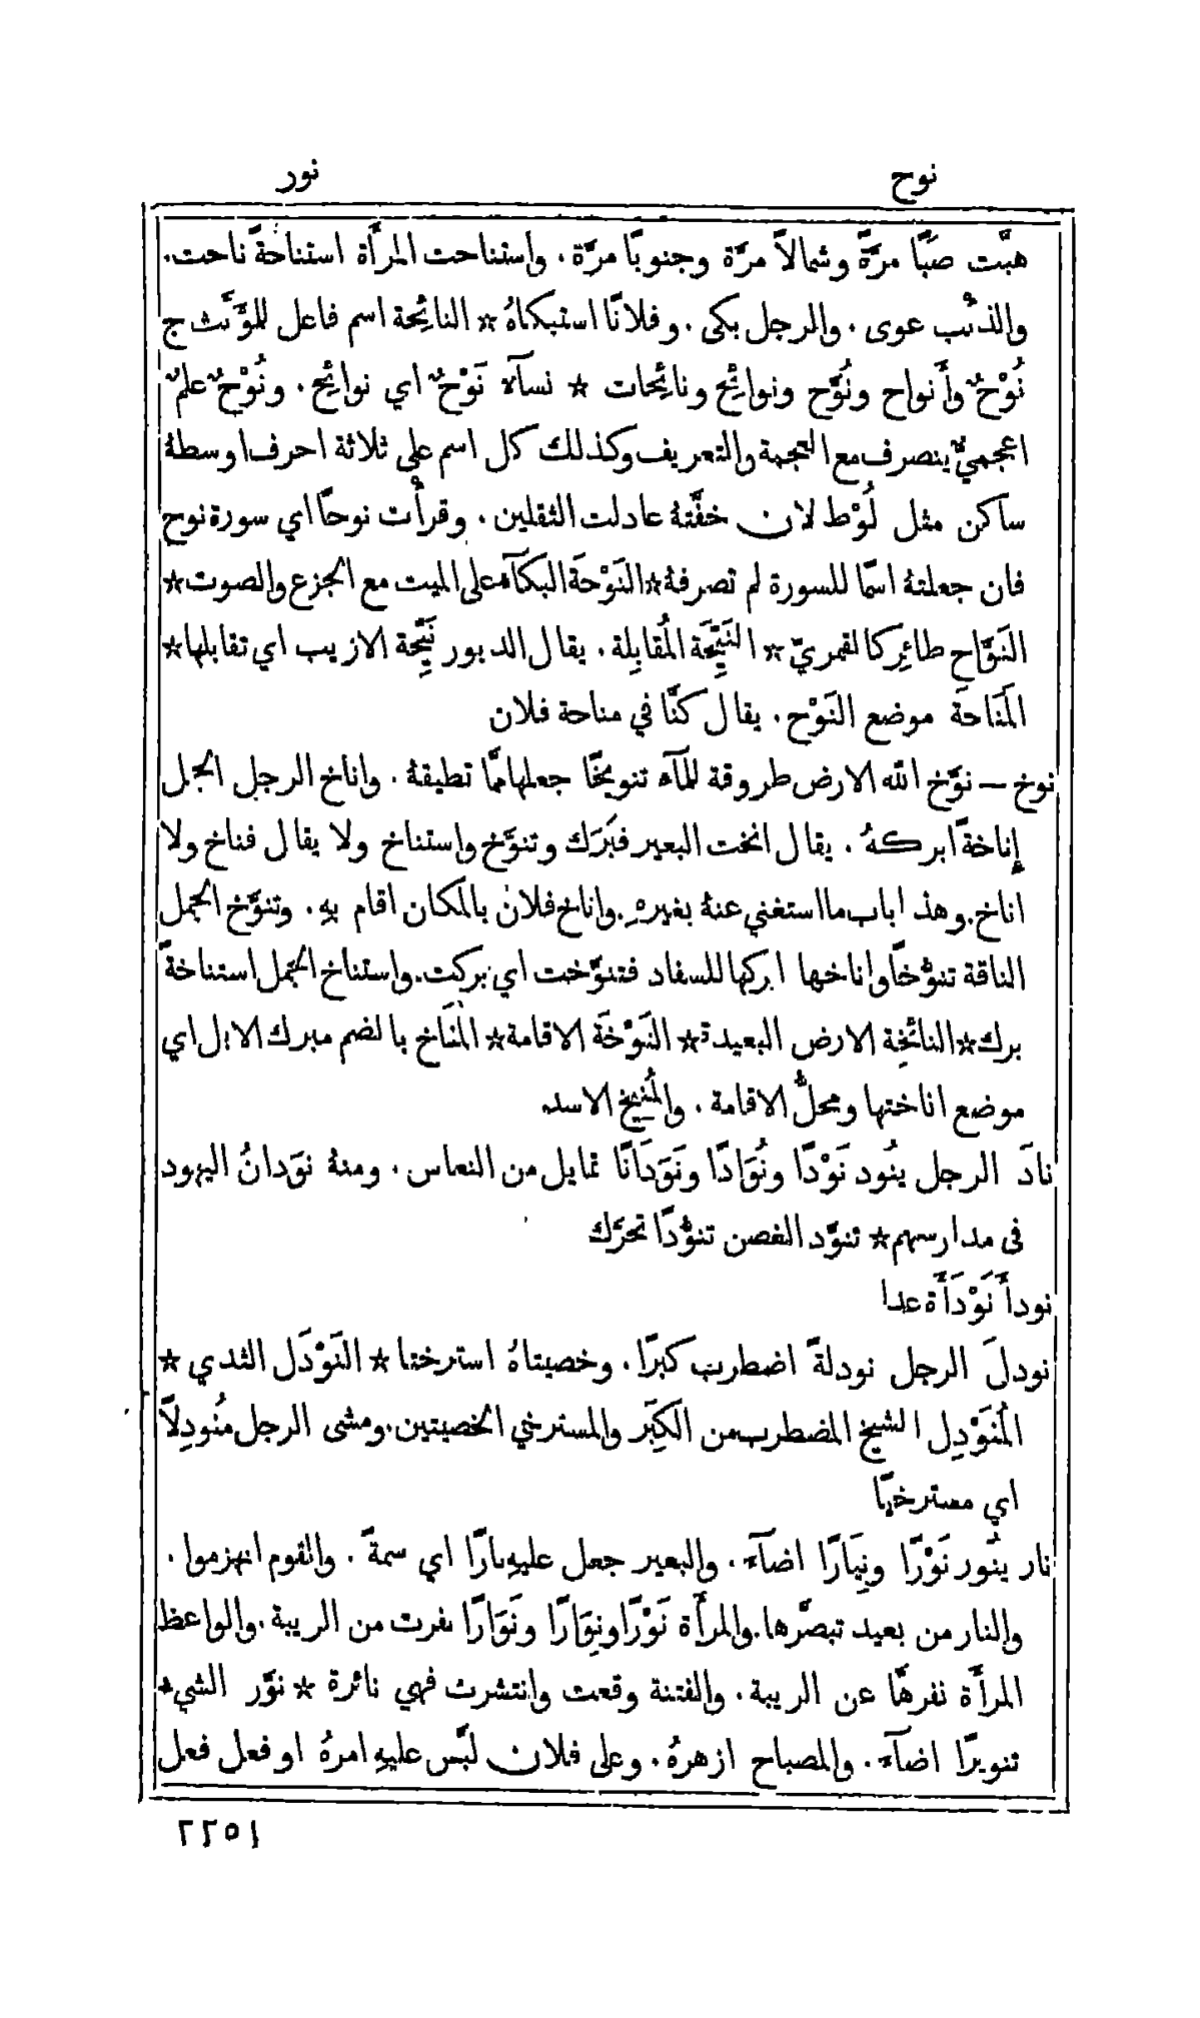 نوح
نور
هبَّت صَبًا مرَّةً وشمالاً مرَّة وجنوبًا مرَّة. واستناحت المرأَة استناحةً ناحت.
والذئْب عوى. والرجل بكى. وفلانًا استبكاهُ ☆ النائِحة اسم فاعل للمؤَنَّث ج
نُوْحٌ وأَنواح ونُوَّح ونوائِح ونائِحات ☆ نسآء نَوْحٌ اي نوائِح. ونُوْحٌ علمٌ
اعجميٌّ ينصرف مع العجمة والتعريف وكذلك كل اسم على ثلاثة احرف اوسطهُ
ساكن مثل لُوْط لان خفَّتهُ عادلت الثقلين. وقرأْت نوحًا اي سورة نوح
فان جعلتهُ اسمًا للسورة لم تصرفهُ ☆ النَوْحَة البكآء على الميت مع الجزع والصوت ☆
النَوَّاح طائِر كالقمريّ ☆ النَيِّحَة المُقابِلة. يقال الدبور نَيِّحة الازيب اي تقابلها ☆
المَنَاحَة موضع النَوْح. يقال كنَّا في مناحة فلان
نوخ – نوَّخ الله الارض طروقة للمآء تنويخًا جعلها ممَّا تطيقهُ. واناخ الرجل الجمل
إِناخةً ابركهُ. يقال انخت البعير فبَرَك وتنوَّخ واستناخ ولا يقال فناخ ولا
اناخ. وهذا باب ما استغني عنهُ بغيرهِ. واناخ فلان بالمكان اقام بهِ. وتنوَّخ الجمل
الناقة تنوُّخًا واناخها ابركها للسفاد فتنوَّخت اي بركت. واستناخ الجمل استناخةً
برك ☆ النائِخة الارض البعيدة ☆ النَوْخَة الاقامة ☆ المُنَاخ بالضم مبرك الابل اي
موضع اناختها ومحلُّ الاقامة. والمُنِيخ الاسد
نادَ الرجل ينُود نَوْدًا ونُوَادًا ونَوَدَانًا تمايل من النعاس. ومنهُ نوَدانُ اليهود
في مدارسهم ☆ تنوَّد الغصن تنوُّدًا تحرَّك
نودأَ نَوْدَأَة عدا
نودلَ الرجل نودلةً اضطرب كبرًا. وخصيتاهُ استرختا ☆ النَوْدَل الثدي ☆
المُنَوْدِل الشيخ المضطرب من الكِبَر والمسترخي الخصيتين. ومشى الرجل مُنُودِلاً
اي مسترخيًا
نار ينُور نَوْرًا ونِيَارًا اضآء. والبعير جعل عليهِ نارًا اي سمةً. والقوم انهزموا.
والنار من بعيد تبصَّرها. والمرأَة نَوْرًا ونِوَارًا ونَوَارًا نفرت من الريبة. والواعظ
المرأَة نفرهَّا عن الريبة. والفتنة وقعت وانتشرت فهي نائرة ☆ نوَّر الشيء
تنويرًا اضآء. والمصباح ازهرهُ. وعلى فلان لبَّس عليهِ امرهُ او فعل فعل
٢٢٥١